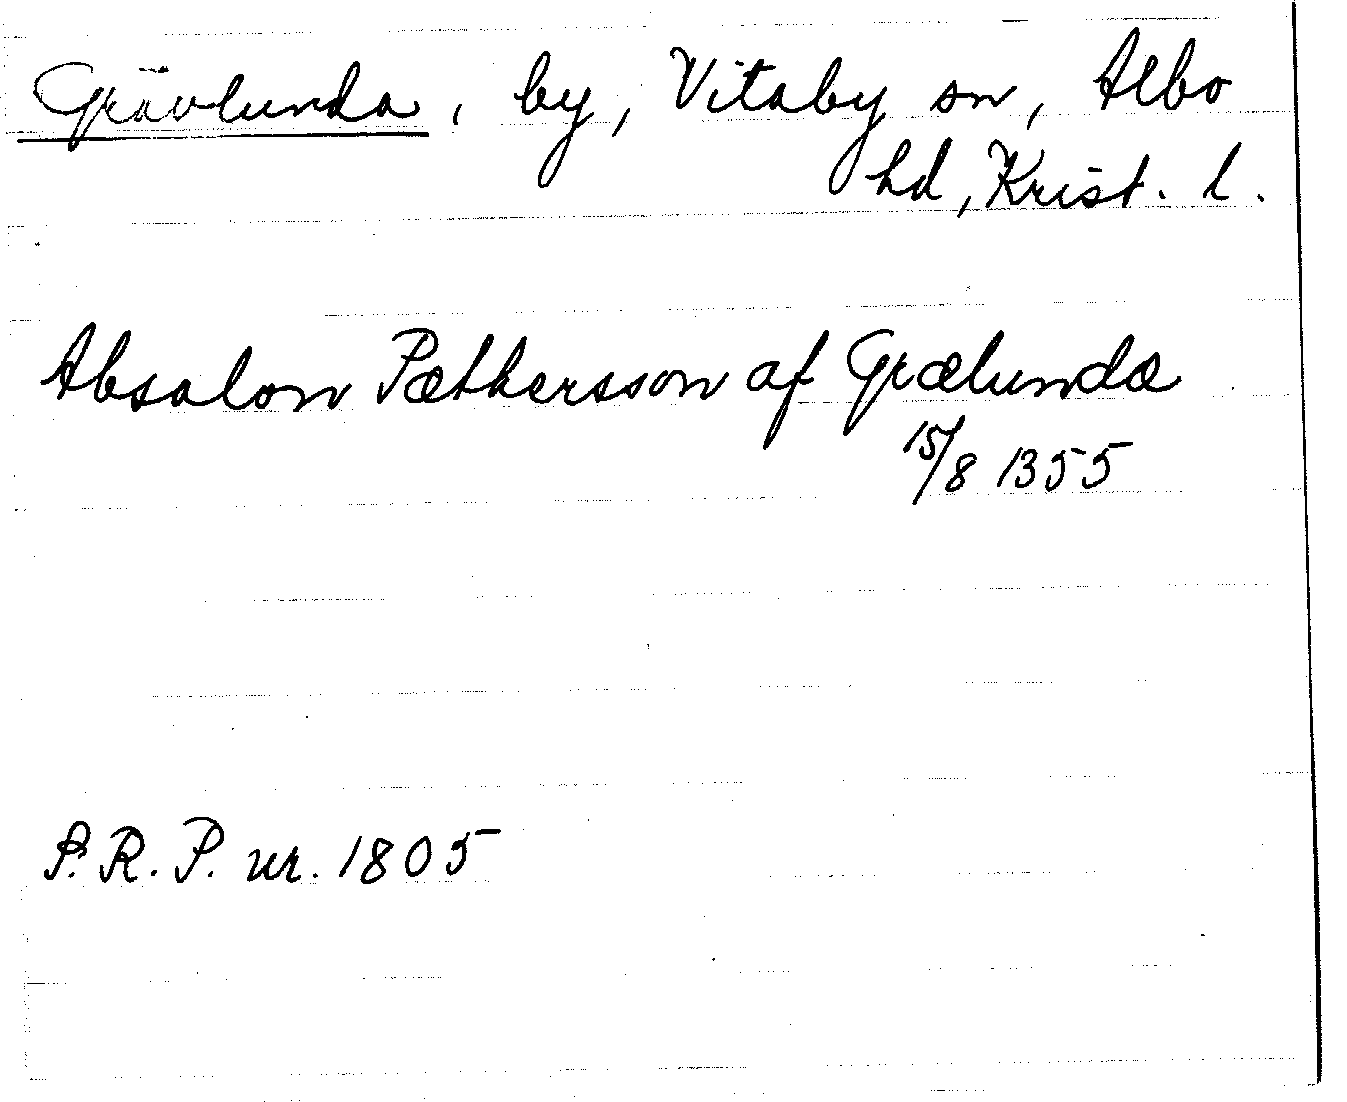 Grävlunda, by, Vitaby sn, Albo
hd, Krist. l.
Absalon Pæthersson af Grælundæ
15/8 1355
P.R.P. nr. 1805